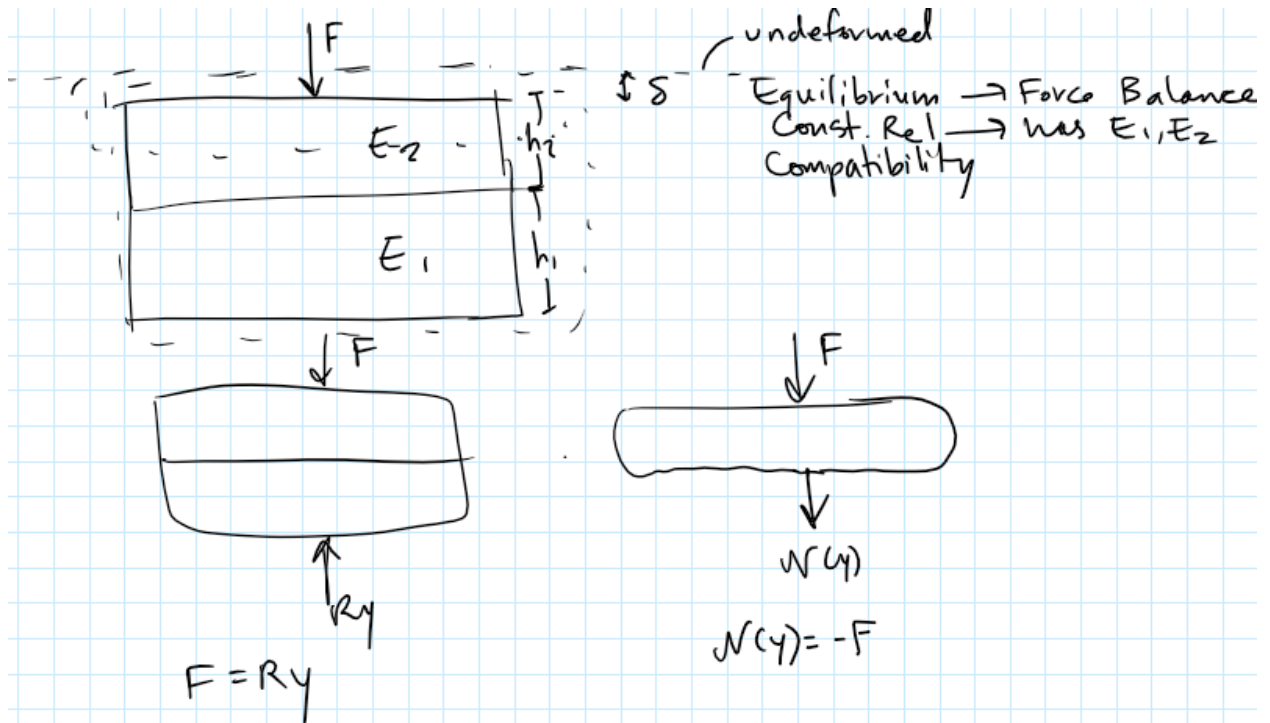 F
undeformed
δ
Equilibrium → Force Balance
Const. Rel → has E₁, E₂
Compatibility
E₂
h₂
E₁
h₁
F
F
Ry
N(y)
F = Ry
N(y) = -F